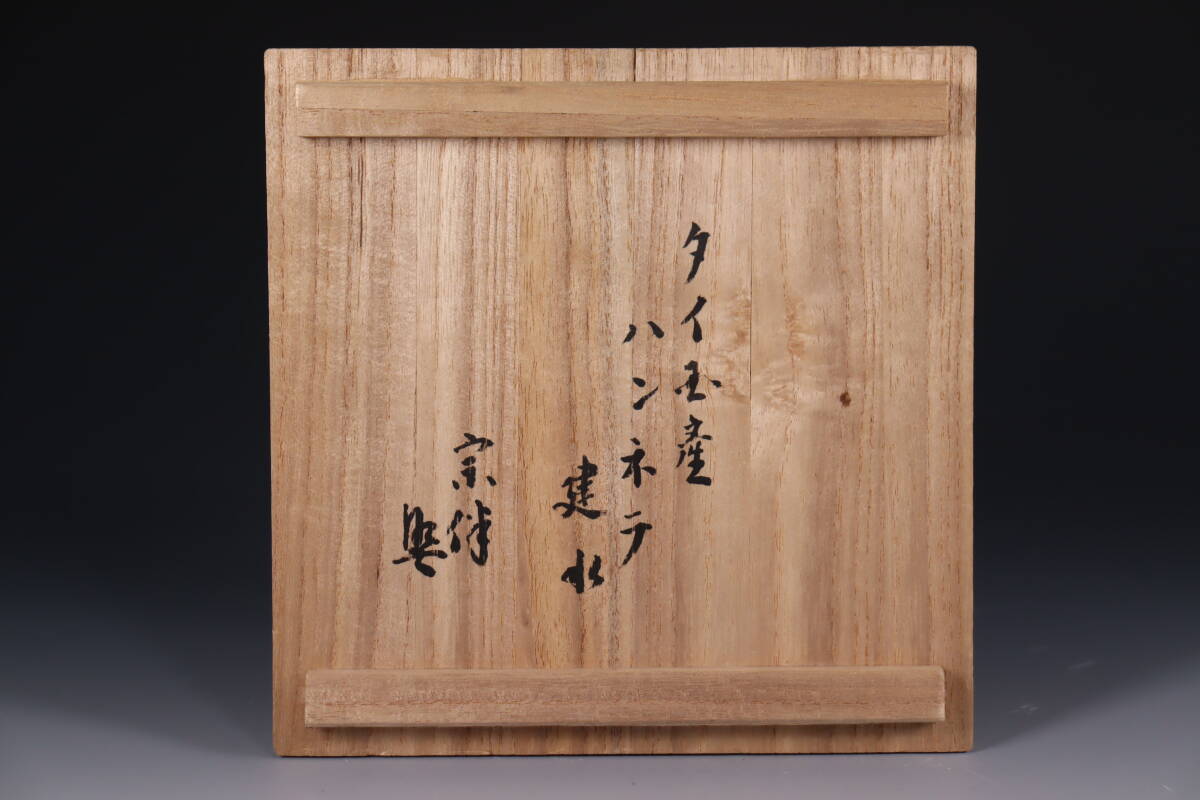 タイ国産
ハンネラ
建水
宗伴
與